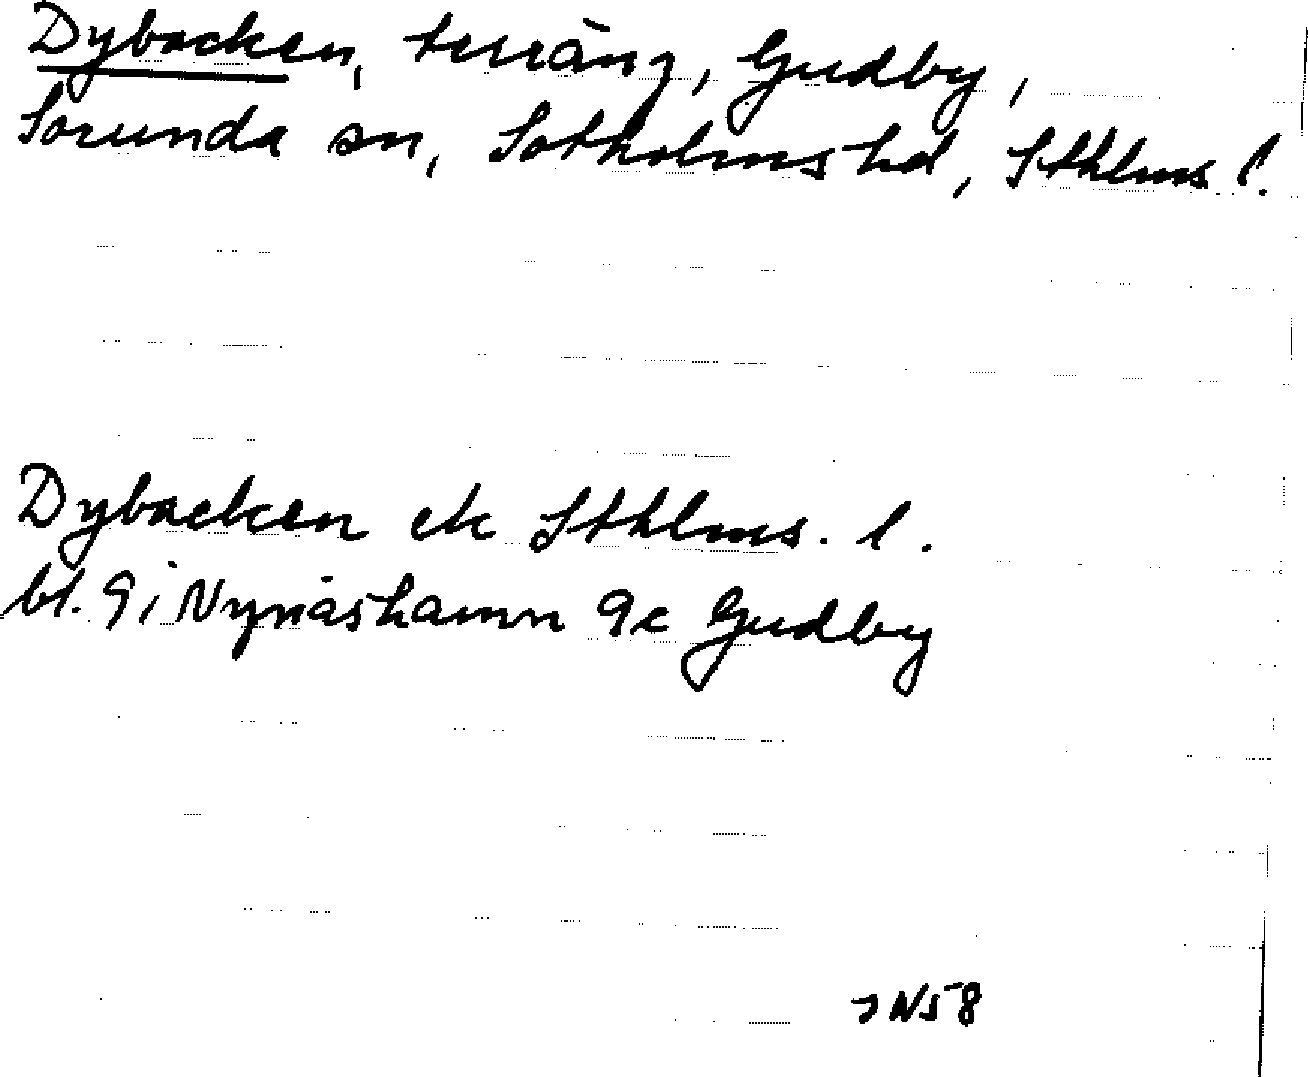 Dybacken, terräng, Gudby,
Sorunda sn, Sotholms hd, Sthlms l.
Dybacken ek Sthlms. l.
bl. 9i Nynäshamn 9c Gudby
JN58